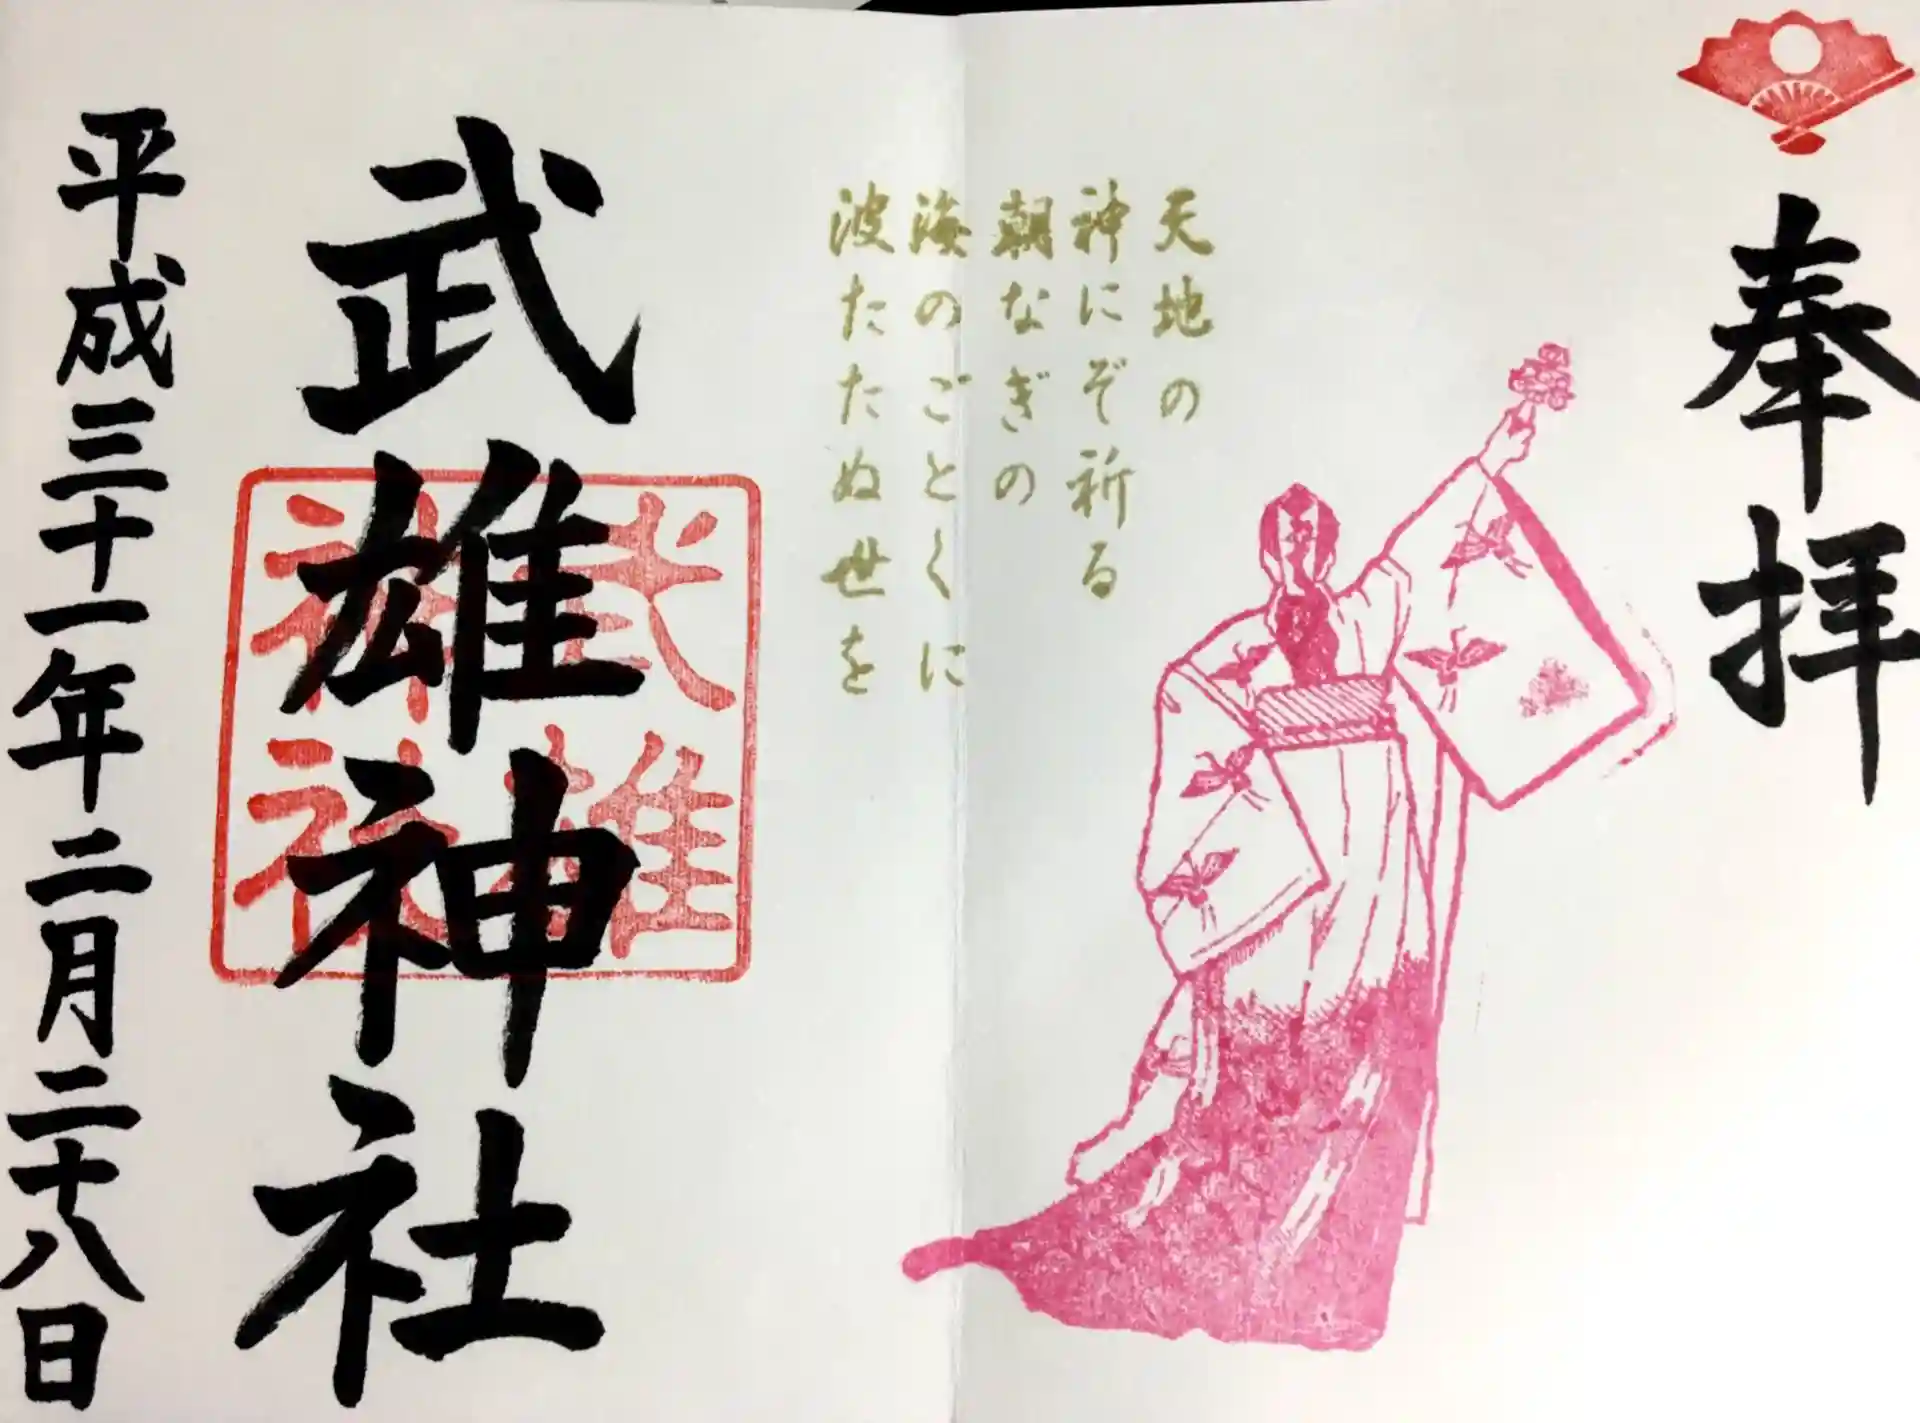 奉拝
天地の
神にぞ祈る
朝なぎの
海のごとくに
波たたぬ世を
武雄神社
武雄
神社
平成三十一年二月二十八日